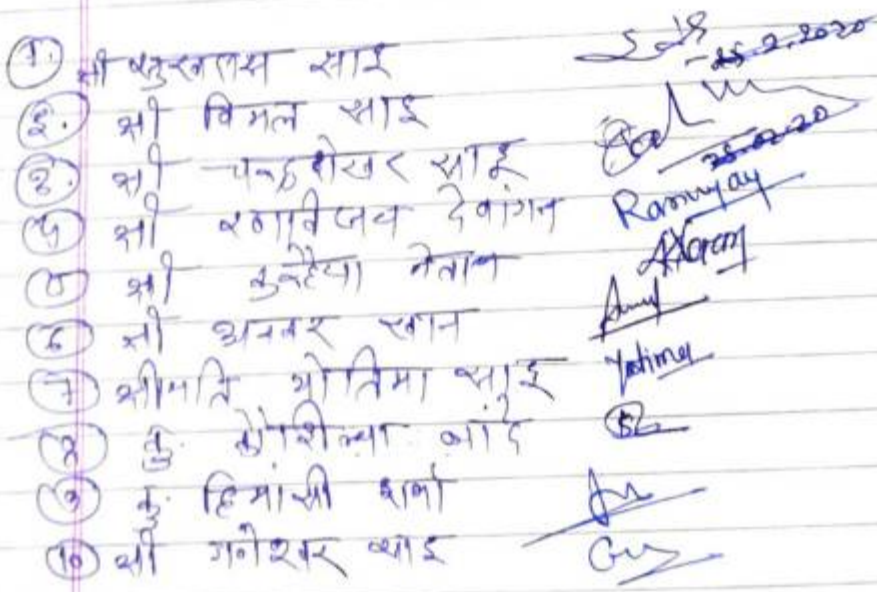 1. श्री सुखराम साहू 25.2.2020
2. श्री विमल साहू
3. श्री चन्द्रशेखर साहू 25.02.20
4 श्री रणविजय देवांगन Ranvijay
5 श्री कन्हैया नेताम
6 श्री अकबर खान
7 श्रीमति प्रतिमा साहू
8 कु. कौशिल्या
9 कु. हिमांशी शर्मा
10 श्री गनेश्वर साहू